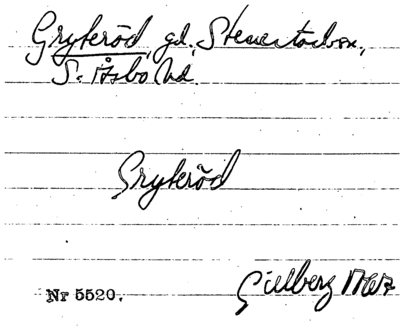 Gryteröd, gd, Stenestad sn,
S. Åsbo hd.
Gryteröd
Gillberg
Nr 5520.